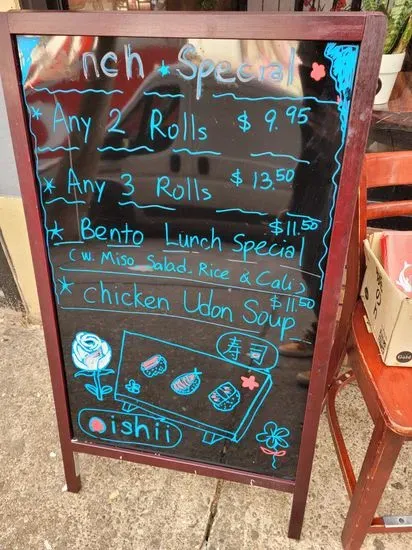 nch Special
Any 2 Rolls $9.95
Any 3 Rolls $13.50
Bento Lunch Special $11.50
(w. Miso Salad, Rice & Cali)
Chicken Udon Soup $11.50
寿司
Oishii